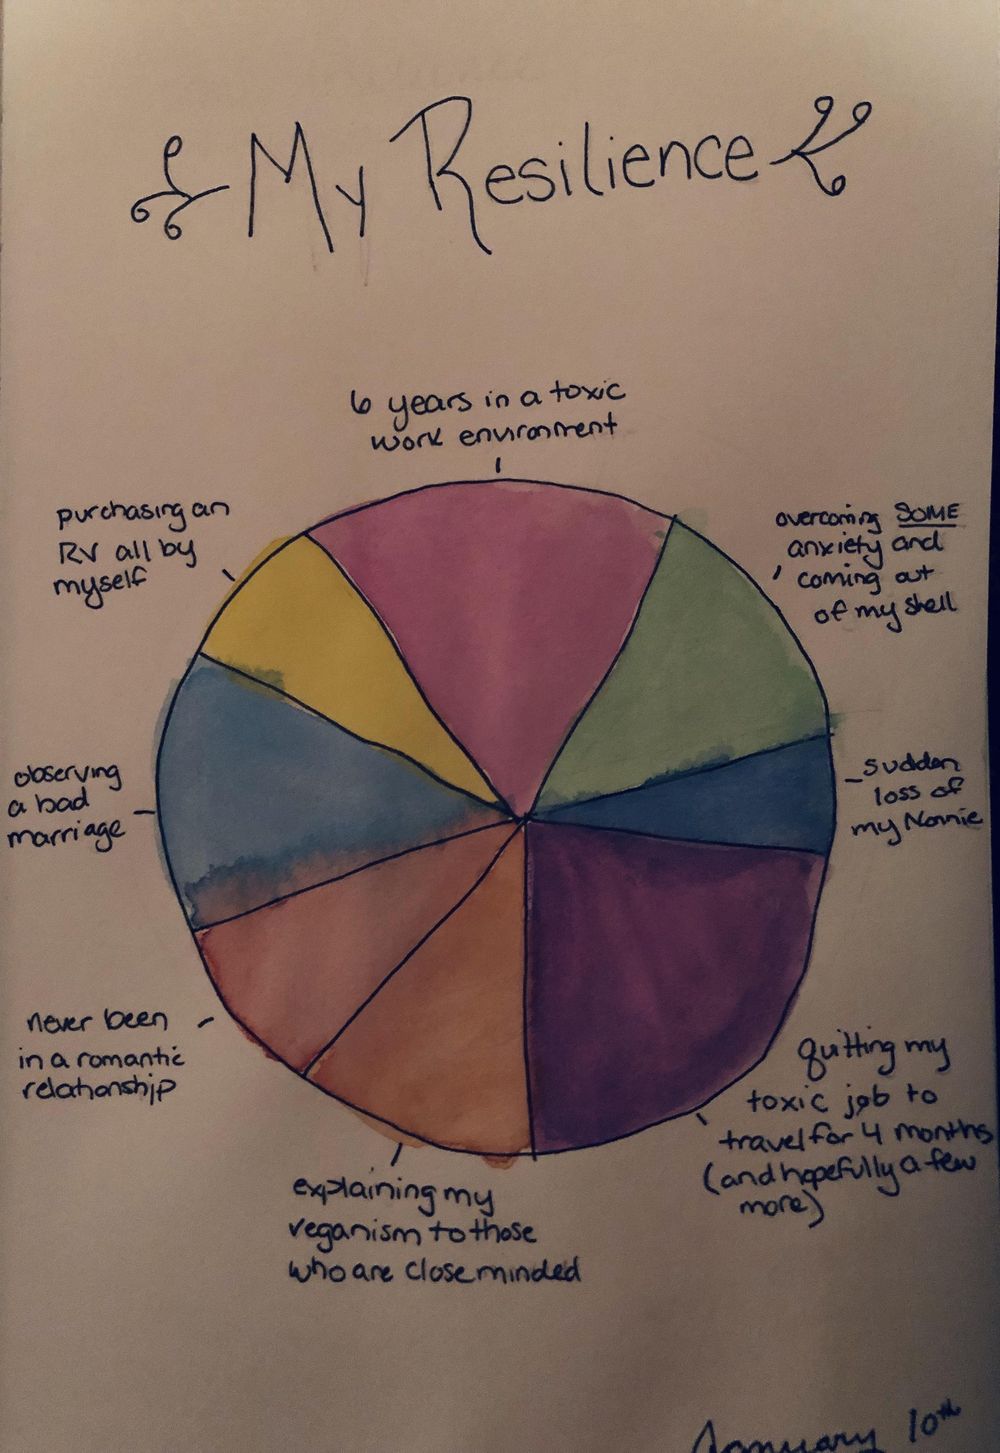 My Resilience
6 years in a toxic
work environment
purchasing an
RV all by
myself
overcoming SOME
anxiety and
coming out
of my shell
observing
a bad
marriage
sudden
loss of
my Nonnie
never been
in a romantic
relationship
quitting my
toxic job to
travel for 4 months
(and hopefully a few
more)
explaining my
veganism to those
who are close minded
January 10th